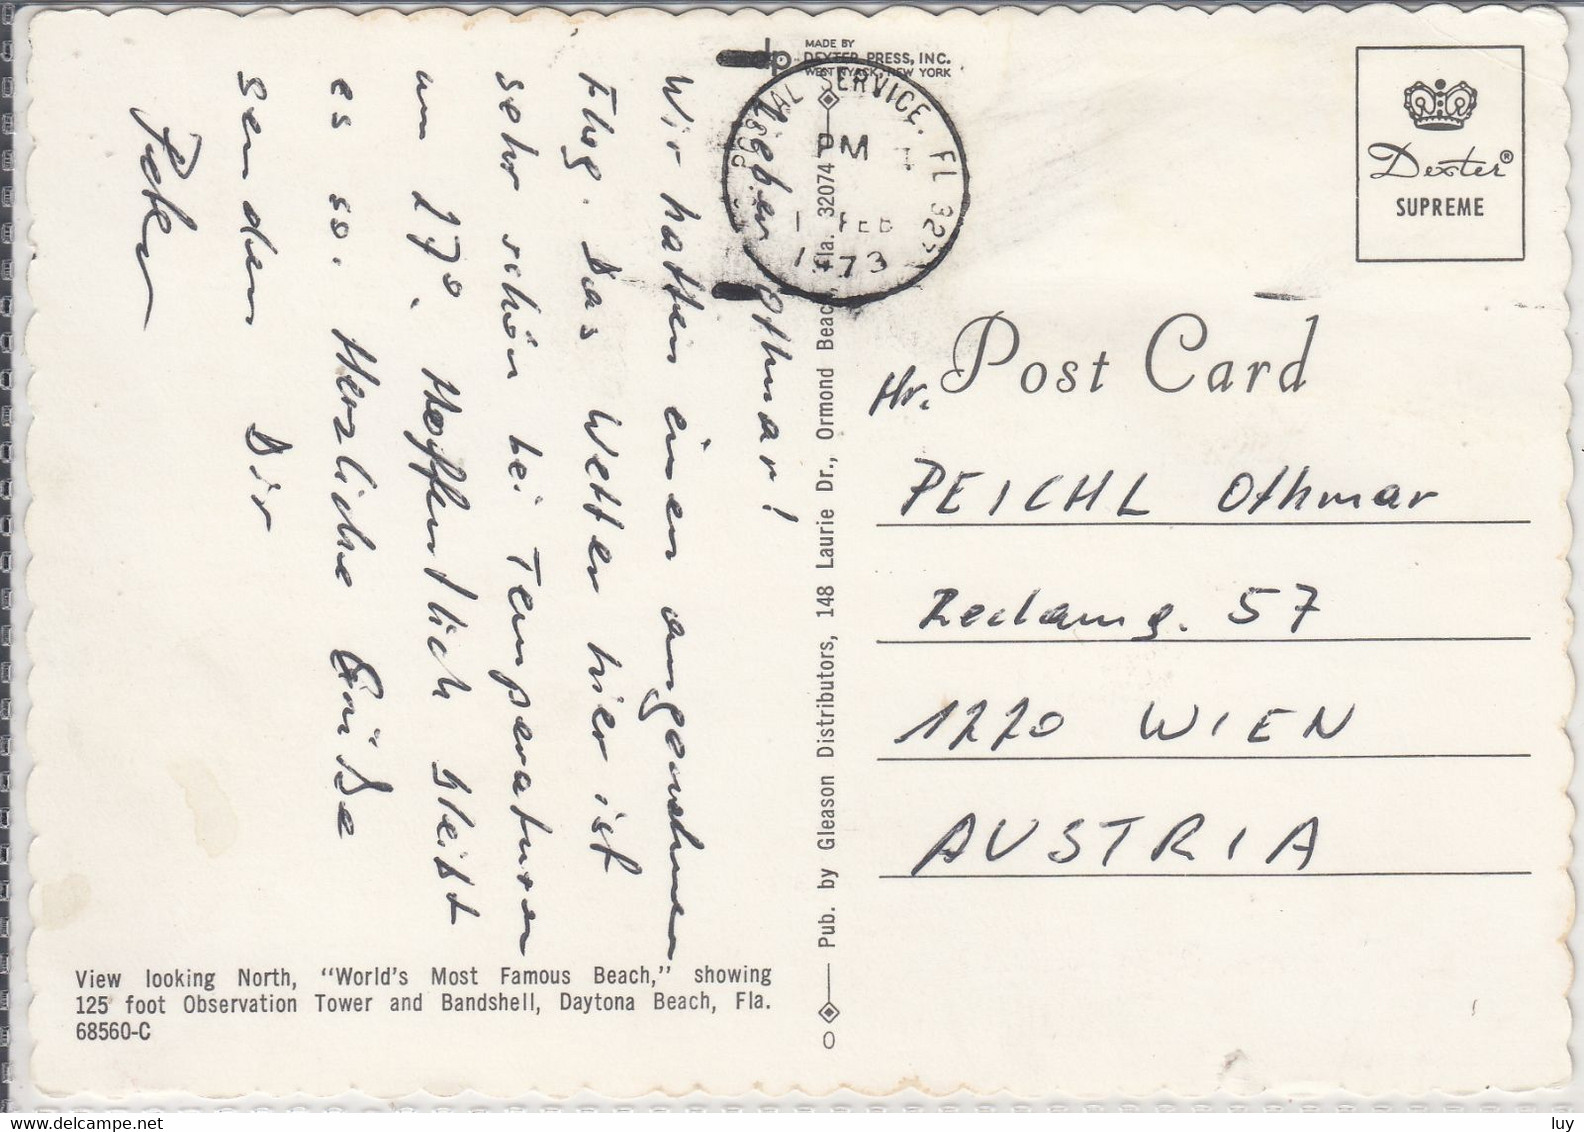 Lieber Othmar!
Wir hatten einen angenehmen
Flug. Das Wetter hier ist
sehr schön bei Temperaturen
um 27°. Hoffentlich bleibt
es so. Herzliche Grüße
senden Dir
Peter
View looking North, "World's Most Famous Beach," showing
125 foot Observation Tower and Bandshell, Daytona Beach, Fla.
68560-C
dp
MADE BY
DEXTER PRESS, INC.
WEST NYACK, NEW YORK
POSTAL SERVICE, FL
PM
1 FEB
1973
Pub. by Gleason Distributors, 148 Laurie Dr., Ormond Beach, Fla. 32074
Dexter®
SUPREME
Post Card
Hr.
PEICHL Othmar
57
1220 WIEN
AUSTRIA
luy